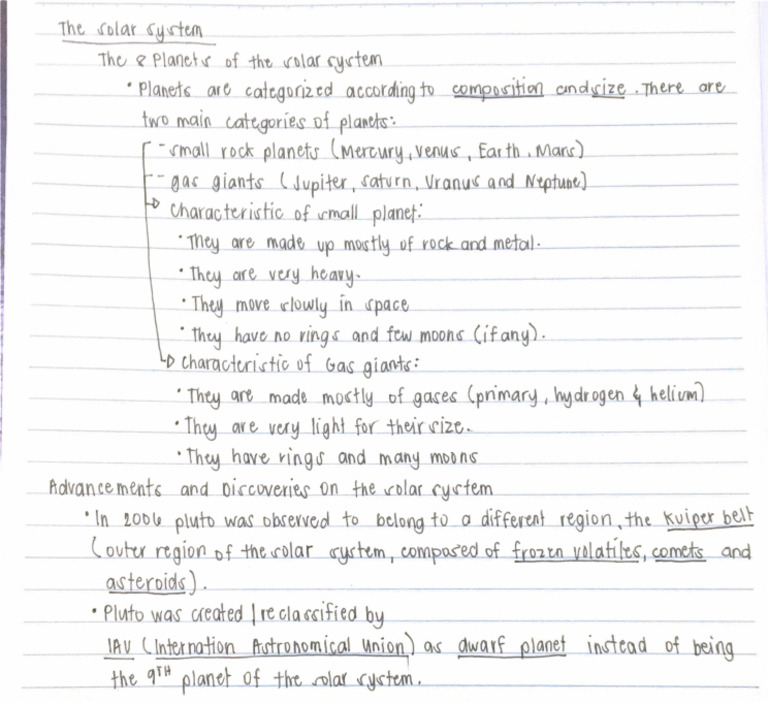 The solar system
The 8 Planets of the solar system
• Planets are categorized according to composition and size. There are
two main categories of planets:
- small rock planets (Mercury, Venus, Earth, Mars)
- gas giants (Jupiter, saturn, Uranus and Neptune)
characteristic of small planet:
• They are made up mostly of rock and metal.
• They are very heavy.
• They move slowly in space
• They have no rings and few moons (if any).
characteristic of Gas giants:
• They are made mostly of gases (primary, hydrogen & helium)
• They are very light for their size.
• They have rings and many moons
Advancements and Discoveries on the solar system
• In 2006 pluto was observed to belong to a different region, the Kuiper belt
(outer region of the solar system, composed of frozen volatiles, comets and
asteroids).
• Pluto was created | reclassified by
IAU (Internation Astronomical Union) as dwarf planet instead of being
the 9TH planet of the solar system.